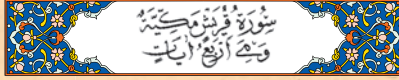 سُورَةُ قُرَيْشٍ مَكِّيَّةٌ
وَهِيَ أَرْبَعُ آيَاتٍ